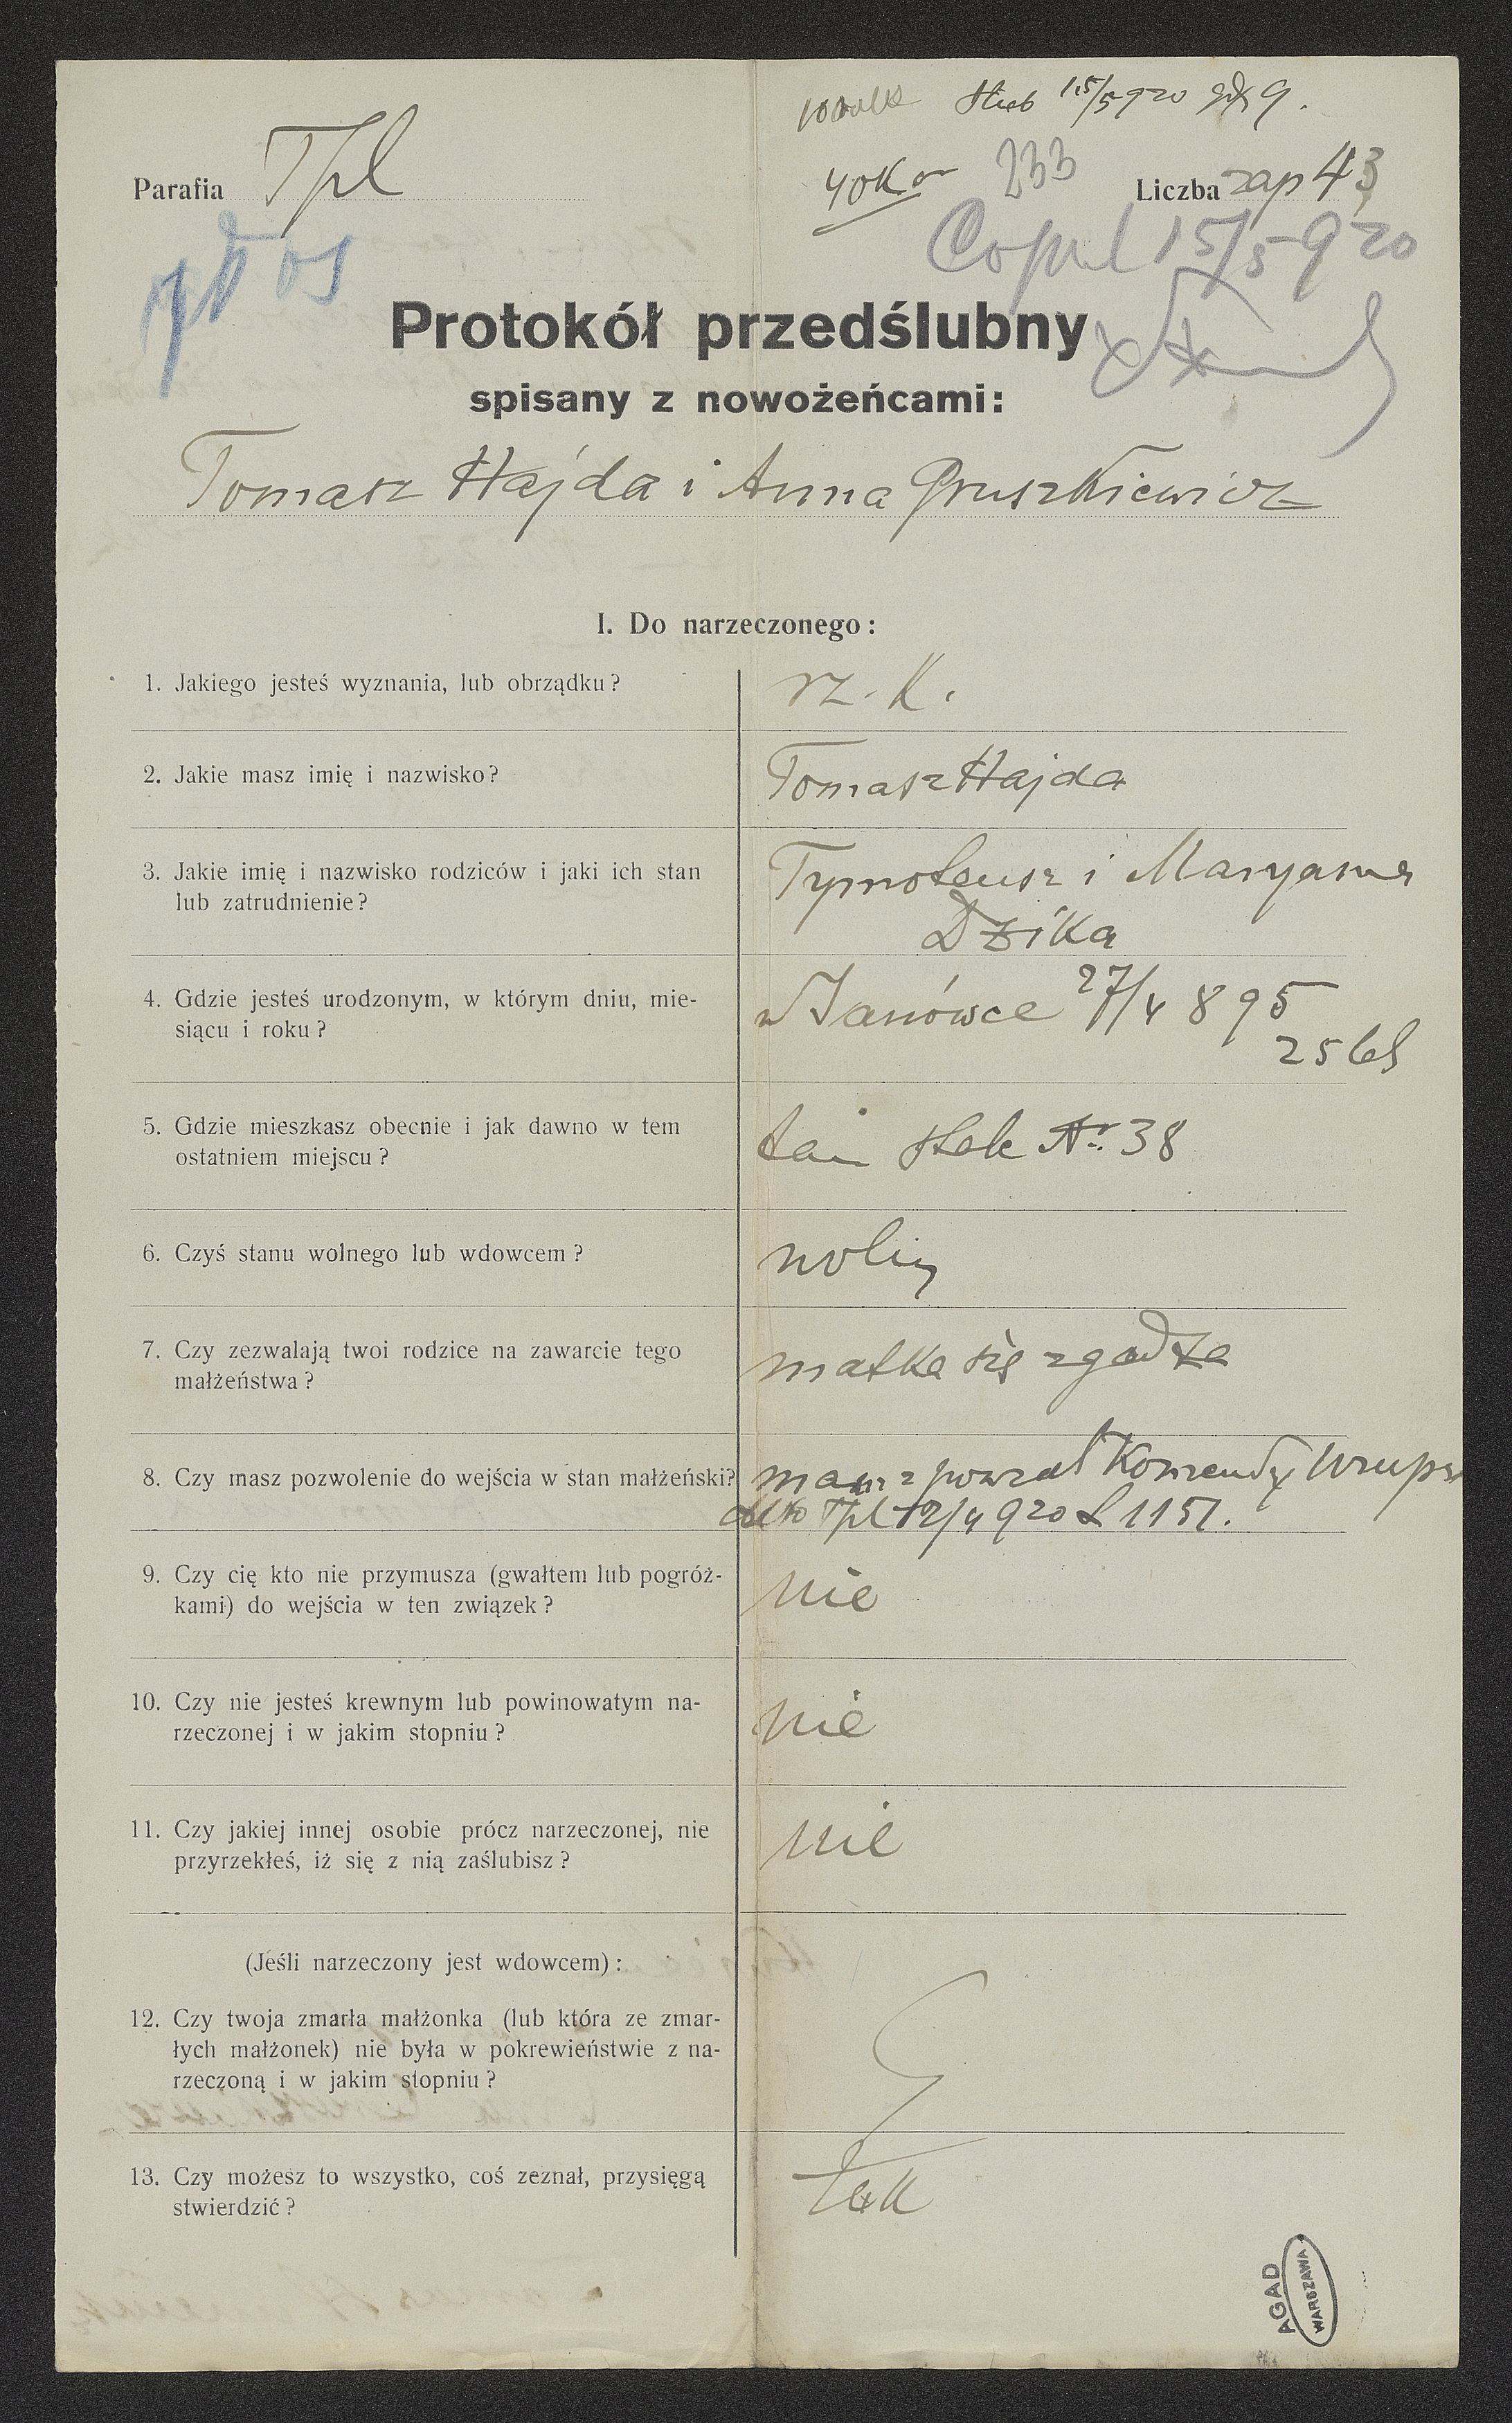 ślub 15/5 920 gdz 9.
Parafia Tpl
40 Kor 233 Liczba zap 43
Copul 15/5 920
Protokół przedślubny
spisany z nowożeńcami:
Tomasz Hajda i Anna Pruszkiewicz
I. Do narzeczonego:
1. Jakiego jesteś wyznania, lub obrządku?
rz. k.
2. Jakie masz imię i nazwisko?
Tomasz Hajda
3. Jakie imię i nazwisko rodziców i jaki ich stan
lub zatrudnienie?
Tymoteusz i Maryanna
Dzika
4. Gdzie jesteś urodzonym, w którym dniu, mie-
siącu i roku?
w Janówce 27/4 895
25 lat
5. Gdzie mieszkasz obecnie i jak dawno w tem
ostatniem miejscu?
tam stale Nr. 38
6. Czyś stanu wolnego lub wdowcem?
wolny
7. Czy zezwalają twoi rodzice na zawarcie tego
małżeństwa?
matka się zgadza
8. Czy masz pozwolenie do wejścia w stan małżeński?
mam z powiat Komendy
Tpl 12/4 920 L 1151.
9. Czy cię kto nie przymusza (gwałtem lub pogróż-
kami) do wejścia w ten związek?
nie
10. Czy nie jesteś krewnym lub powinowatym na-
rzeczonej i w jakim stopniu?
nie
11. Czy jakiej innej osobie prócz narzeczonej, nie
przyrzekłeś, iż się z nią zaślubisz?
nie
(Jeśli narzeczony jest wdowcem):
12. Czy twoja zmarła małżonka (lub która ze zmar-
łych małżonek) nie była w pokrewieństwie z na-
rzeczoną i w jakim stopniu?
13. Czy możesz to wszystko, coś zeznał, przysięgą
stwierdzić?
tak
AGAD
WARSZAWA